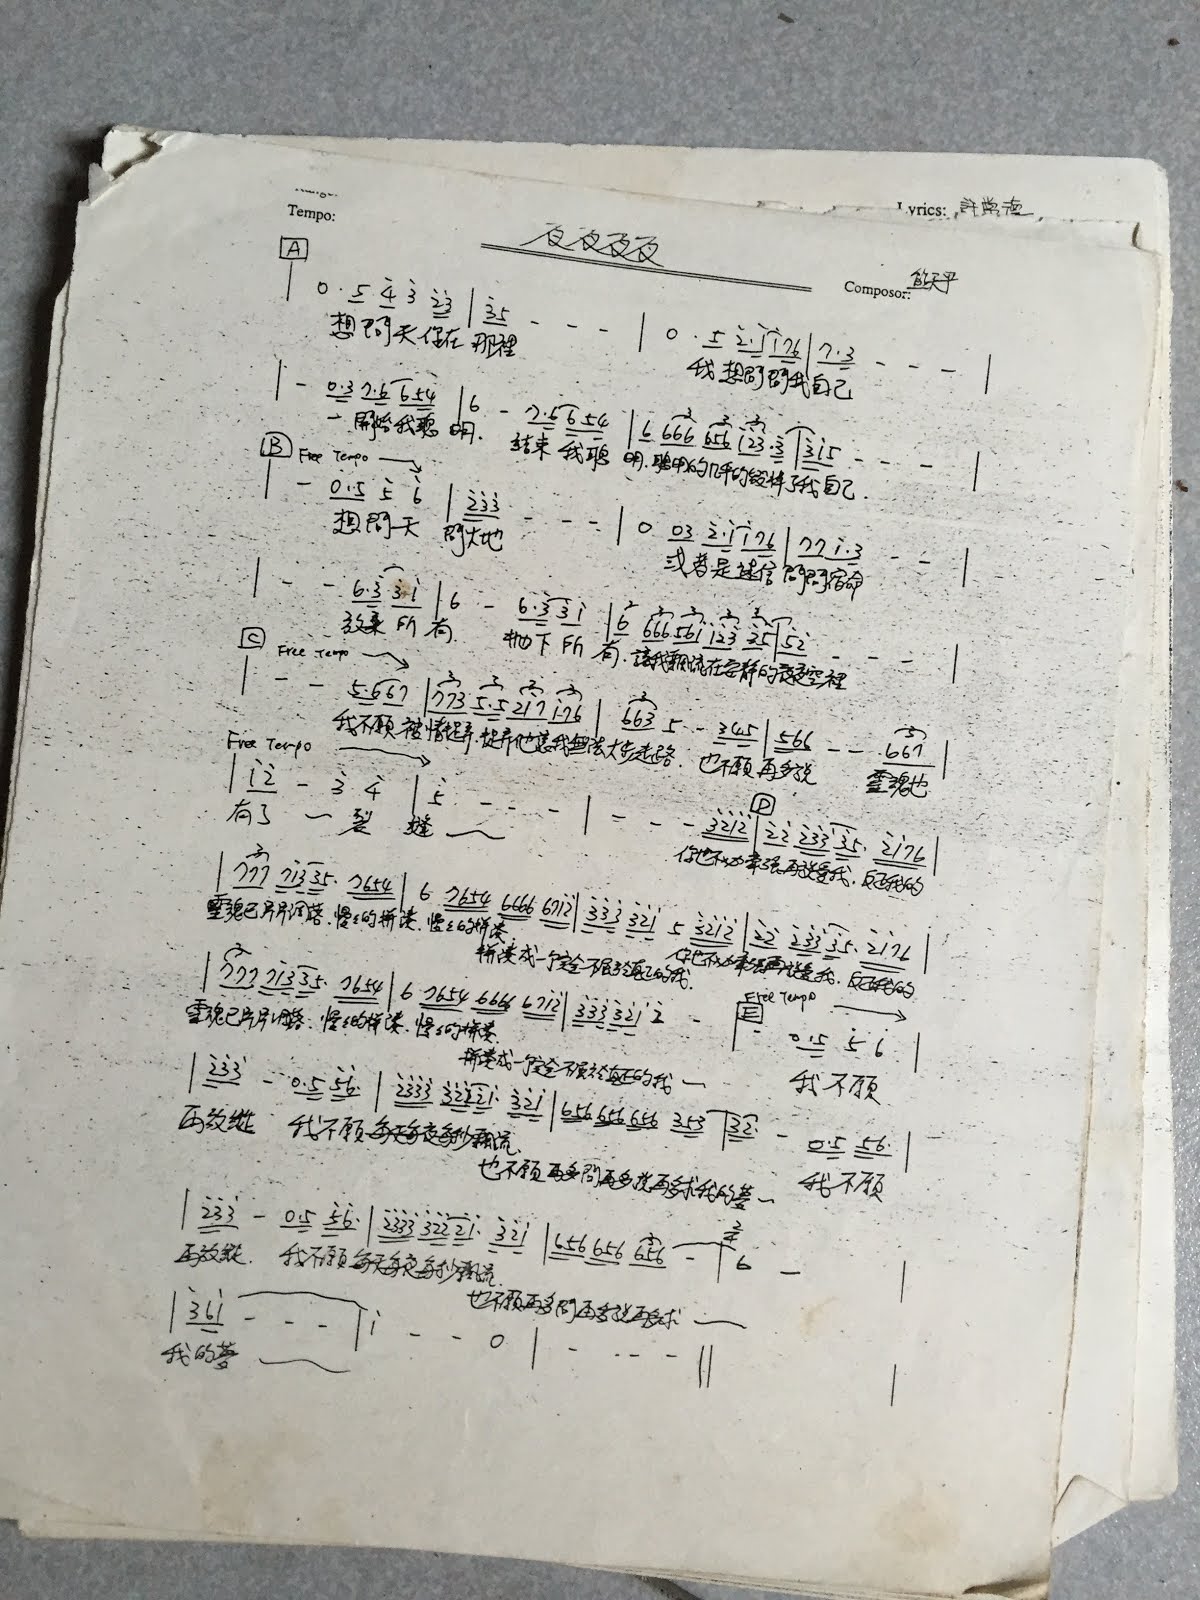 Tempo:
Lyrics: 許常德
夜夜夜夜
Composor: 熊天平
A
0. 5 4 3 23 | 35 - - - | 0. 5 2.1 176 | 7.3 - - - |
想問天你在那裡 我想問問我自己
| - 0.3 7.6 654 | 6 - 7.6 654 | 6 666 656 123.3 | 315 - - - |
一開始我聰明. 結束我聰明. 聰明的几乎的毀掉了我自己.
B Free Tempo
| - 0.5 5 6 | 233 - - - | 0 03 2.1 176 | 77 1.3 - - |
想問天 問大地 或者是迷信問問宿命
| - - 6.3 31 | 6 - 6.3 31 | 6 666 561 123 35 | 52 - - - |
放棄所有. 拋下所有. 讓我飄流在安靜的夜夜空裡
C Free Tempo
| - - 5.667 | 773 5.5 217 176 | 663 5 - 345 | 566 - - 667 |
我不願被情捉弄. 捉弄 讓我無法大步走路. 也不願再多說 靈魂也
Free Tempo
| 12 - 3 4 | 5 - - - | - - - 3212 | 22 233 35. 2176 |
有了一裂縫
D
你也不必牽強再說愛我, 反正我的
| 777 71335. 7654 | 6 7654 6666 6712 | 333 321 5 3212 | 22 233 35. 2176 |
靈魂已片片凋落. 慢々的拼湊. 慢々的拼湊.
拼湊成一個完全不屬於真正的我. 你也不必牽強再說愛我, 反正我的
| 777 71335. 7654 | 6 7654 6666 6712 | 333 321 2 - | -
靈魂已片片凋落. 慢々的拼湊. 慢々的拼湊.
拼湊成一個完全不屬於真正的我
E Free Tempo
0.5 5 6 |
我不願
| 233 - 0.5 56. | 2333 32221. 321 | 656 656 656 353 | 32. - 0.5 56. |
再放縱 我不願每天每夜每秒飄流.
也不願再多問再多說再多求我的夢 我不願
| 233 - 0.5 56. | 2333 32221. 321 | 656 656 656 - | 6 - |
再放縱. 我不願每天每夜每秒飄流.
也不願再多問再多說再多求
| 361 - - - | 1 - - 0 | - - - - ||
我的夢